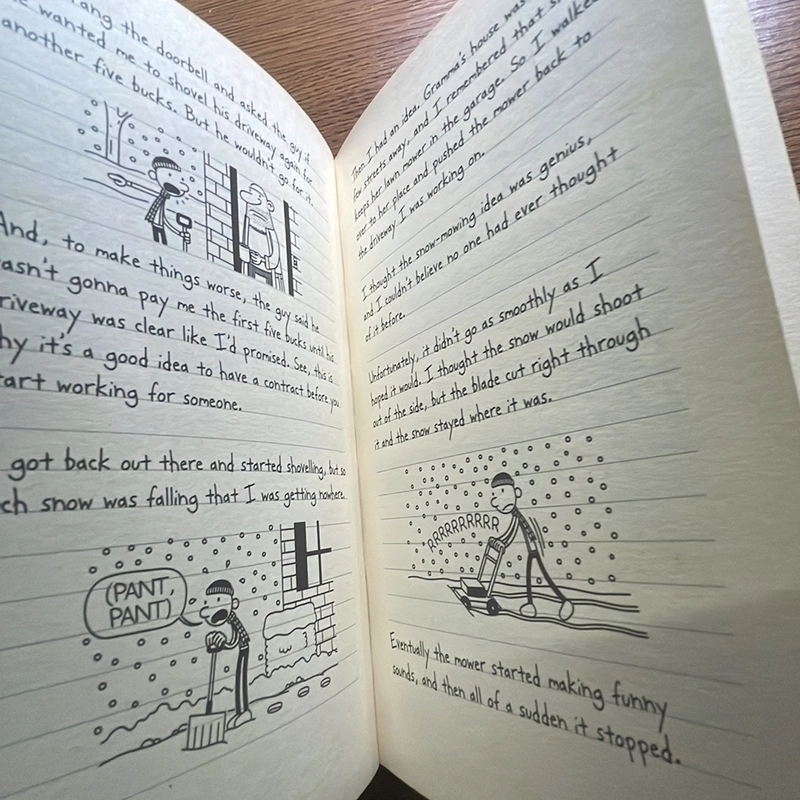 rang the doorbell and asked the guy if
wanted me to shovel his driveway again for
another five bucks. But he wouldn't go for it.
And, to make things worse, the guy said he
gonna pay me the first five bucks until his
driveway was clear like I'd promised. See, this is
why it's a good idea to have a contract before you
start working for someone.
got back out there and started shovelling, but so
snow was falling that I was getting nowhere.
(PANT,
PANT)
Then I had an idea. Gramma's house was
few streets away, and I remembered that
keeps her lawn mower in the garage. So I walked
over to her place and pushed the mower back to
the driveway I was working on.
I thought the snow-mowing idea was genius,
and I couldn't believe no one had ever thought
of it before.
Unfortunately, it didn't go as smoothly as I
hoped it would. I thought the snow would shoot
out of the side, but the blade cut right through
it and the snow stayed where it was.
RRRRRRRRRR
Eventually the mower started making funny
sounds, and then all of a sudden it stopped.